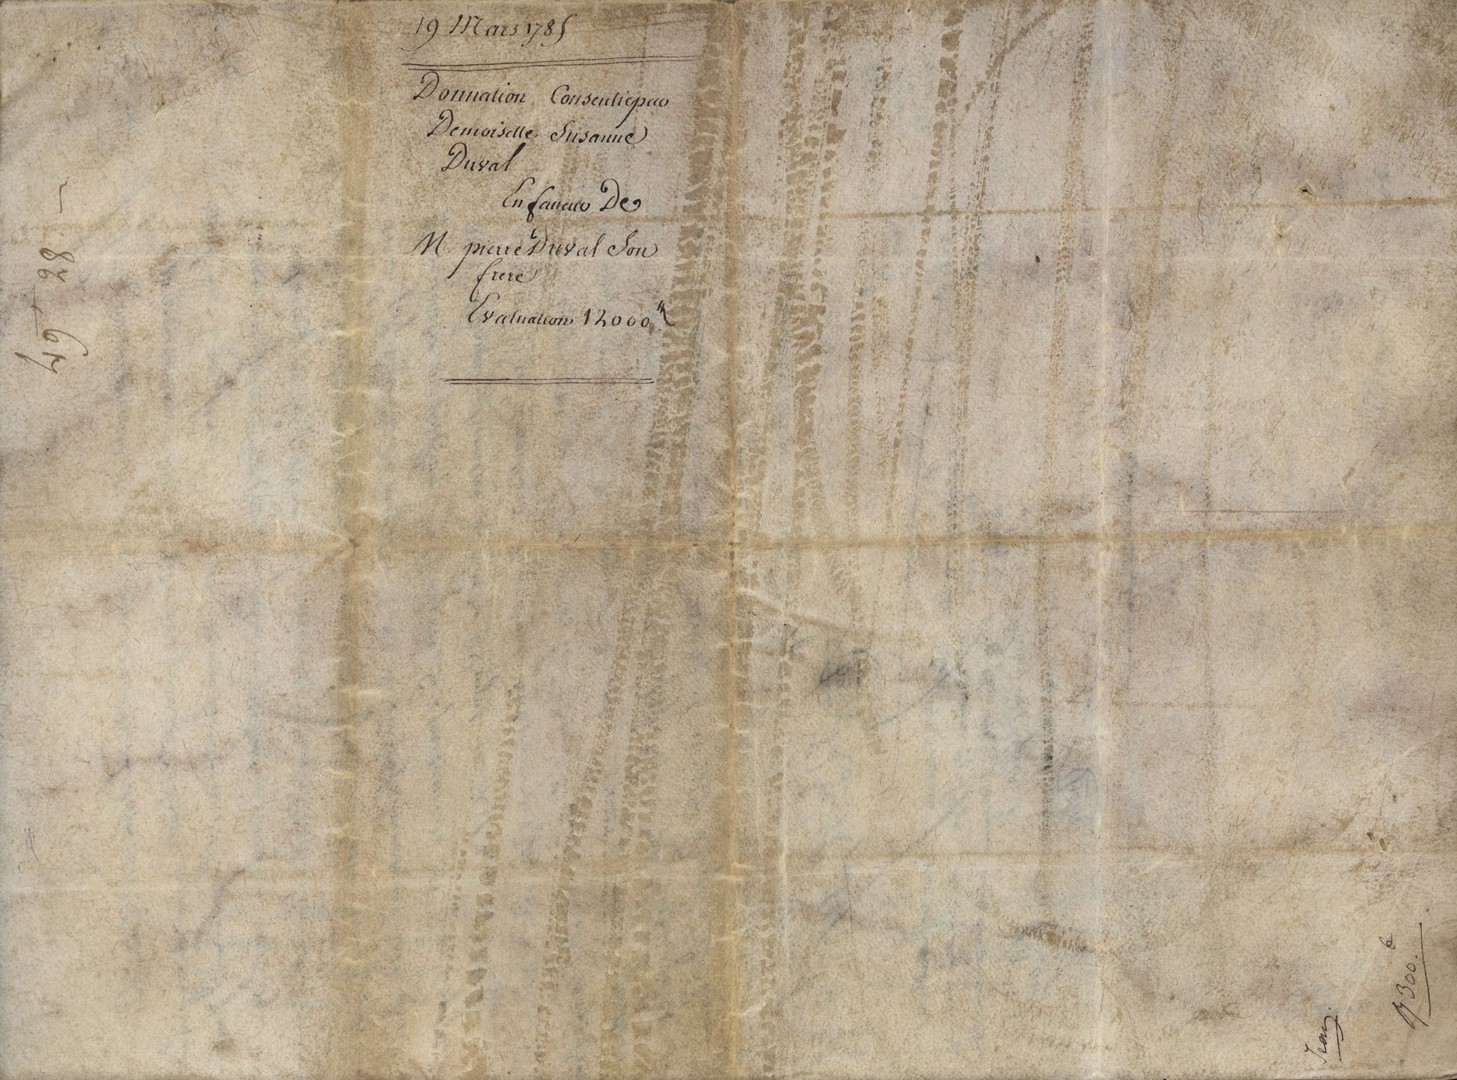 19 Mars 1785
Donnation Consentie par
Demoiselle Susanne
Duval
En faveur De
M pierre Duval Son
frere
Evaluation 12000ᵗᵗ
49 28
300